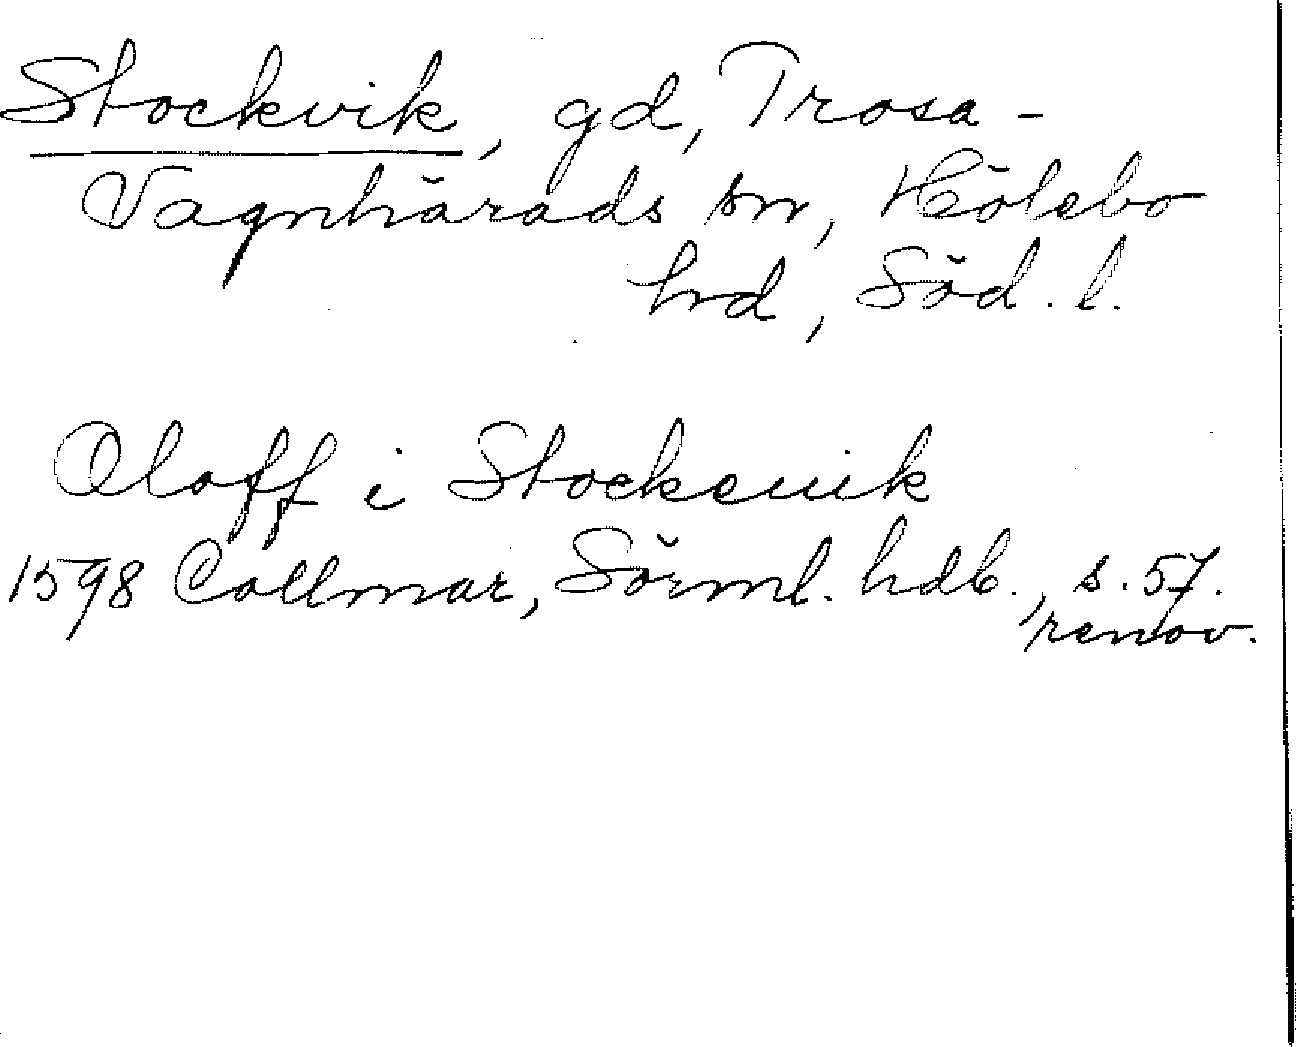 Stockvik, gd, Trosa-
Vagnhärads sn, Hölebo
hrd, Söd. l.
Oloff i Stockeuik
1598 Collmar, Sörml. hdb., s. 57.
renov.